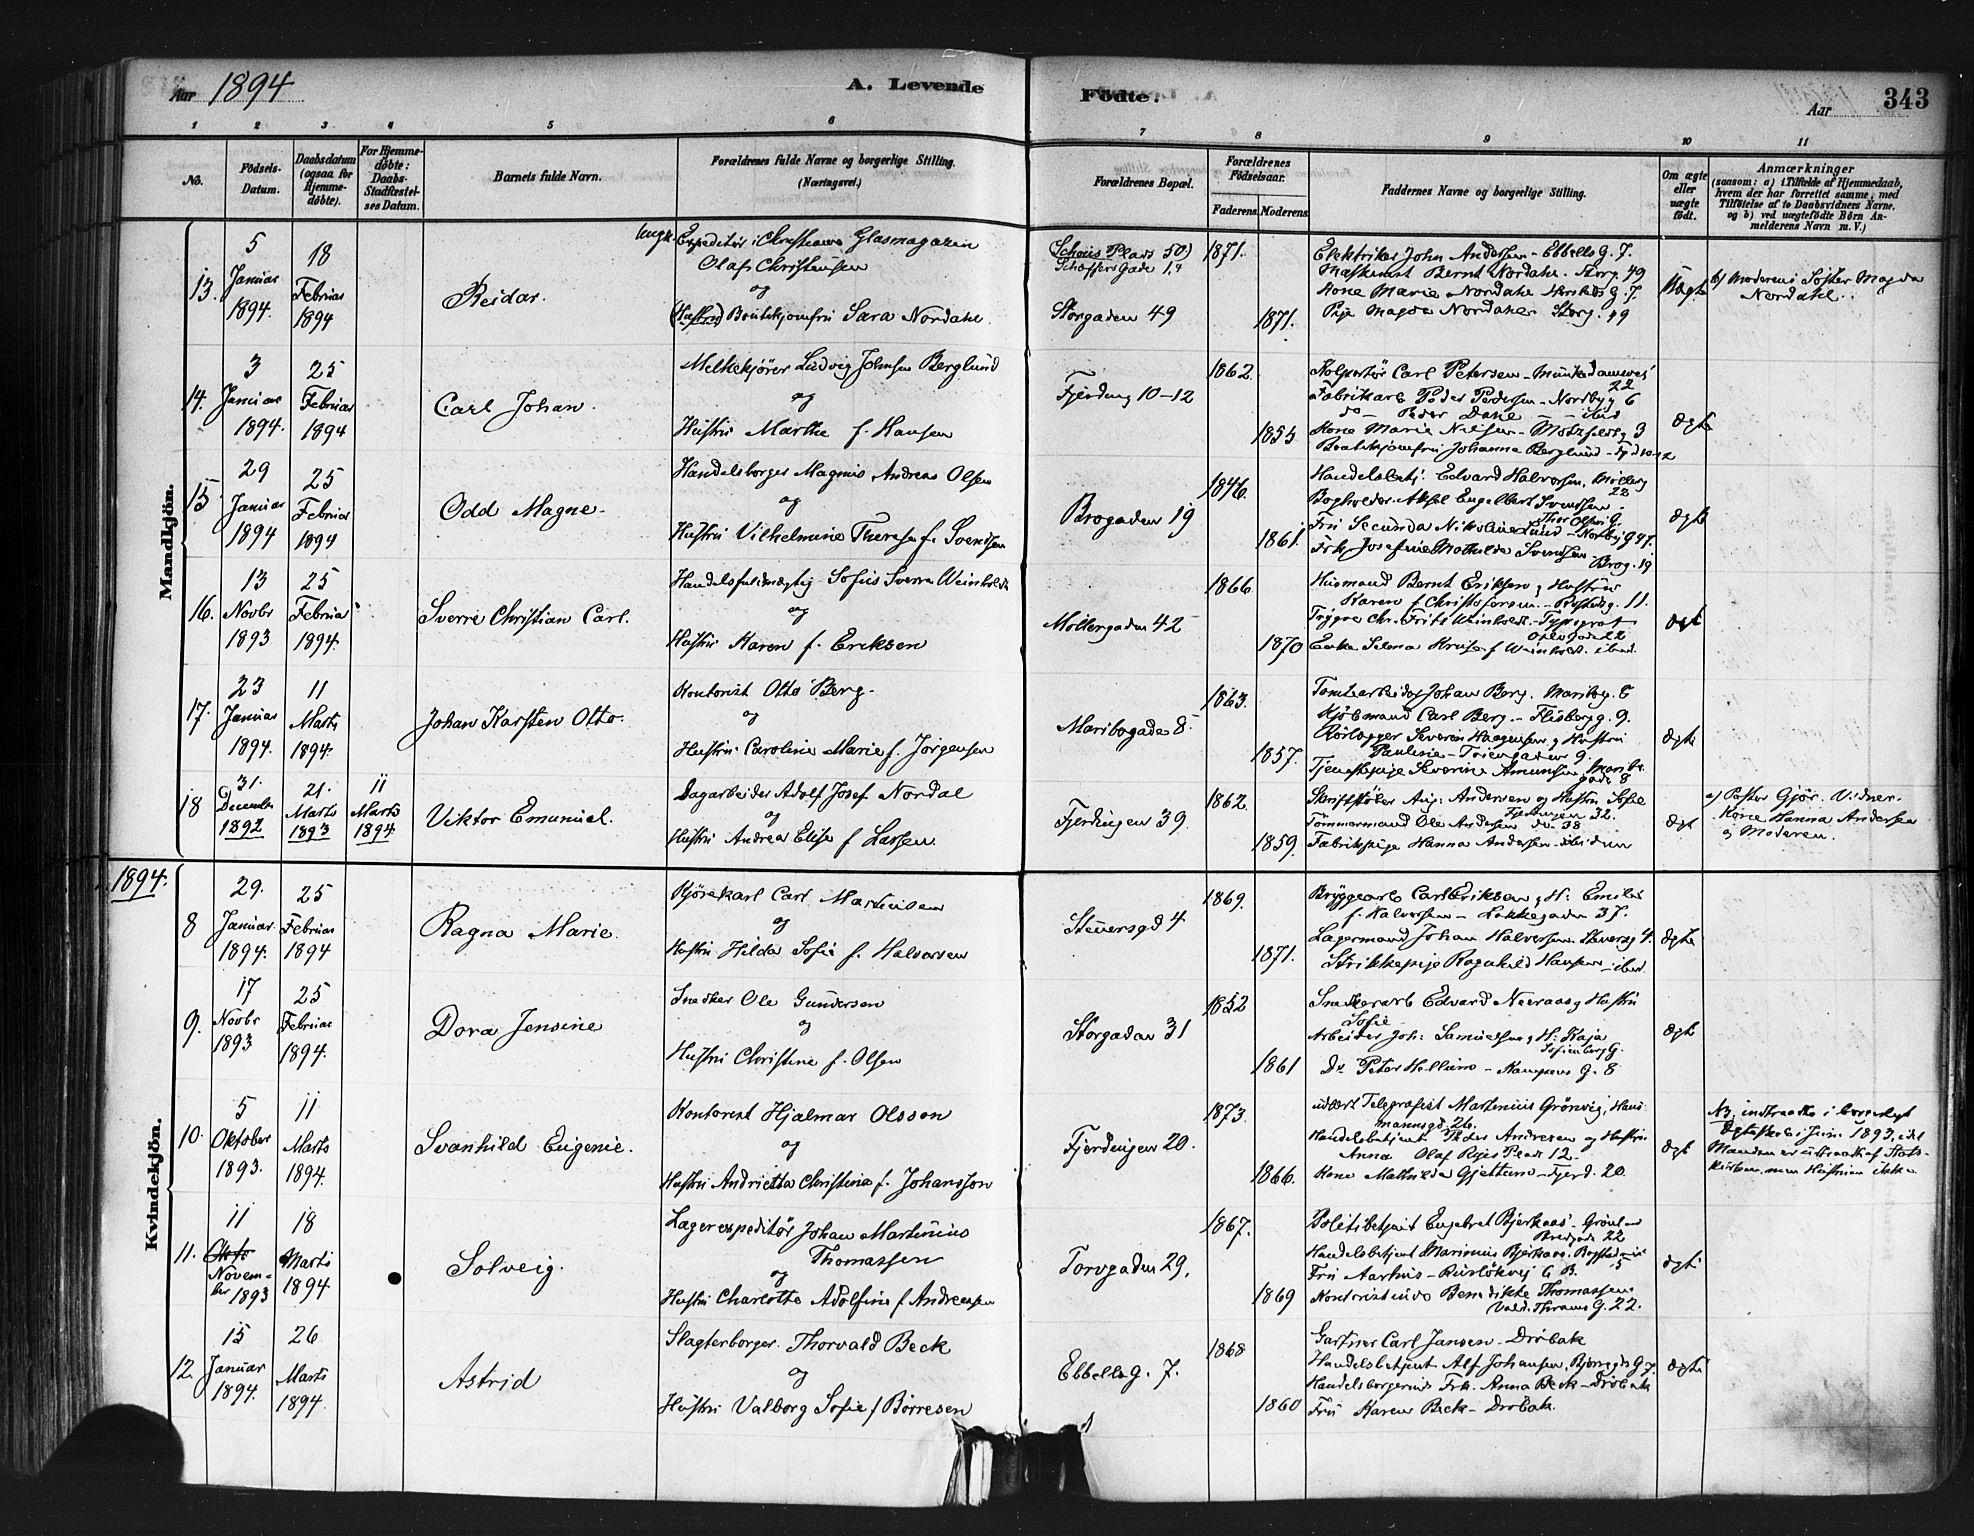 Aar 1894
A. Levende Födte.
Aar
343
1 2 3 4 5 6 7 8 9 10 11
No.
Födsels-Datum.
Daabsdatum (ogsaa for Hjemme-döbte).
For Hjemme-döbte: Daabs-Stadfæstel-ses Datum.
Barnets fulde Navn.
Forældrenes fulde Navne og borgerlige Stilling.
(Næringsvei.)
Forældrenes Bopæl.
Forældrenes Födselsaar.
Faderens. Moderens.
Faddernes Navne og borgerlige Stilling.
Om ægte eller uægte födt.
Anmærkninger
(saasom: a) i Tilfælde af Hjemmedaab, hvem der har forrettet samme, med Tilföielse af to Daabsvidners Navne, og b) ved uægtefödte Börn Anmelderens Navn m. V.)
Mandkjön.
13.
5 Januar 1894.
18 Februar 1894
Reidar.
Ungk. Expeditør i Christiania Glasmagazin
Olaf Christensen
og
(Hustru) Boutikjomfru Sara Nordahl.
Schous Plads 50)
Schæffers Gade 14
Storgaden 49
1871.
1871.
Elektriker John Andersen - Ebbells G. 7.
Maskinist Bernt Nordahl. Storg. 49
Kone Marie Nordahl G. 7.
Pige Magda Nordahl. Storg. 49
Uægte
b) Moderens Søster Magda
Nordahl.
14.
3 Januar 1894.
25 Februar 1894
Carl Johan.
Melkekjører Ludvig Johnsen Berglund
og
Hustru Marthe f. Hansen
Fjerding 10-12
1862.
1855
Kolportør Carl Petersen - Munkedamsvei
22
Fabrikarb Peder Pedersen - Nordbyg 6
do - Peder Dahl - ibid
Kone Marie Nilsen - Motzfeldtg 3
Boutikjomfru Johanne Berglund - Fjd 10-12
Ægte
15
29 Januar 1894
25 Februar 1894
Odd Magne.
Handelsborger Magnus Andreas Olsen
og
Hustru Vilhelmine Therese f. Svendsen
Brogaden 19
1846.
1861.
Handelsbetj. Edvard Halvorsen, Møllerg
22
Bogholder Aksel Engelbert Svensen -
Thor Olsens G.
Fru Secunda Nikoline Lund - Nordbyg 47.
Frk Josefine Mathilde Svendsen
Brog. 19
Ægte
16.
13 Novbr 1893
25 Februar 1894.
Sverre Christian Carl.
Handelsfuldmægtig Sofus Sverre Weinholdt
og
Hustru Karen f. Eriksen
Møllergaden 42
1866
1870
Husmand Bernt Eriksen og Hustru
Karen f Christofersen - 11.
Chr. Frits Weinholdt - Typograf
22
Enke Selma Kruse f Weinholdt. ibid.
Ægte
17.
23 Januar 1894.
11 Marts 1894.
Johan Karsten Otto.
Kontorist Otto Berg.
og
Hustru Caroline Marie f. Jørgensen
Maribogaden 8.
1863.
1857.
Tomtearbeider Johan Berg. Maribog. 8
Kjøbmand Carl Berg - Flisbergg. 9.
Rørlægger Severin Haagensen og Hustru
Pauline - 9.
Tjenestepige Severine Amundsen Maribo
gaden 8
Ægte
18
31. December 1892
21. Marts 1893
11 Marts 1894
Viktor Emanuel.
Dagarbeider Adolf Josef Nordal
og
Hustru Andrea Elise f Larsen.
Fjerdingen 39.
1862.
1859.
Skriftstøber Aug. Andersen og Hustru Sofie
Fjerdingen 32.
Tømmermand Ole Andersen do 38
Fabrikspige Hanna Andersen -
Ægte
a) Pastor Gjør. Vidner.
Kone Hanna Andersen
og Moderen.
1894.
Kvindekjön.
8
29. Januar 1894.
25 Februar 1894
Ragna Marie.
Kjørekarl Carl Martinsen
og
Hustru Hilda Sofie f. Halvorsen
Steversgd 4
1869.
1871.
Bryggearb Carl Eriksen og H: Emilie
f. Halvorsen - Løkkegaden 37.
Lagermand Johan Halvorsen Steversg 4.
Strikkepige Ragnhild Hansen - ibid.
Ægte
9.
17 Novbr 1893
25 Februar 1894.
Dora Jensine
Snedker Ole Gundersen
og
Hustru Christine f. Olsen
Storgaden 31
1852
1861
Snedkerarb Edvard Neeraas og Hustru
Sofie
Arbeider Joh: Samuelsen og H: Kaja
Sofienberg G.
Do Peter Hellum - Kampens G. 8
Ægte
10.
5 Oktober 1893.
11 Marts 1894.
Svanhild Eugenie.
Kontorist Hjalmar Olsson
og
Hustru Andrietta Christina f. Johansson
Fjerdingen 20.
1873.
1866.
udlært Telegrafist Martinius Grönvig, Haus
mannsgd. 26.
Handelsbetjent Peder Andresen og Hustru
Anna Olaf Ryes Plads 12.
Kone Mathilde Gjettum - Fjerd. 20
Ægt
NB. indtraadte i borgerligt
Ægteskab i Juni 1893, idet
Manden er udtraadt af Stats-
kirken, men Hustruen ikke
11.
11 Okto November 1893
18 Marts 1894
Solveig.
Lagerexpeditør Johan Martinius
Thomassen
og
Hustru Charlotte Adolfine f. Andreassen
Torvgaden 29.
1867.
1869
Politibetjent Engebret Bjerkaas - Grønland
Bredgade 22
Handelsbetjent Marinius Bjerkaas. Bogstadvei
5
Fru Aarhus - Ruseløkvei 6 B.
Kontoristinde Benedikte Thomassen
Vald. Thranes G. 22.
Ægte
12.
15 Januar 1894.
26 Marts 1894.
Astrid
Slagterborger. Thorvald Beck
og
Hustru Valborg Sofie f Børresen
Ebbells G. 7.
1868
1860
Gartner Carl Jansen - Drøbak
Handelsbetjent Alf Johansen, G. 7.
Handelsborgerinde Frk. Anna Beck - Drøbak
Fru Karen Beck - Drøbak.
Ægte